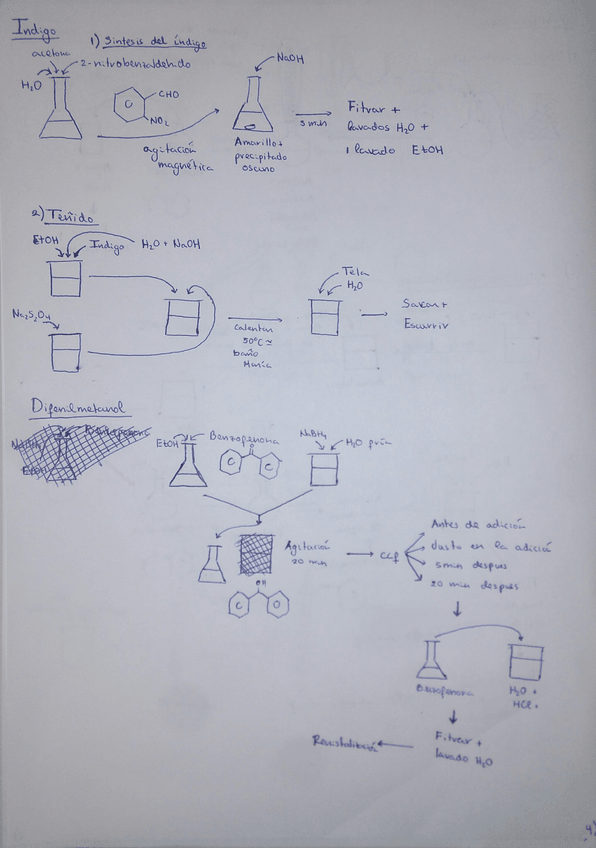 Indigo
1) Sintesis del indigo
acetona
2-nitrobenzaldehido
H₂O
CHO
NO₂
NaOH
5 min
Fitrar +
lavados H₂O +
1 lavado EtOH
agitación
magnética
Amarillo +
precipitado
oscuro
2) Teñido
EtOH
Indigo
H₂O + NaOH
Na₂S₂O₄
Calentar
50ºC ≈
baño
María
Tela
H₂O
Sacar +
Escurrir
Difenilmetanol
EtOH
Benzofenona
NaBH₄
H₂O fría
Agitación
20 min
OH
CCF
Antes de adición
Justo en la adición
5 min despues
20 min despues
Benzofenona
H₂O +
HCl
Fitrar +
lavado H₂O
Recristalización
4)